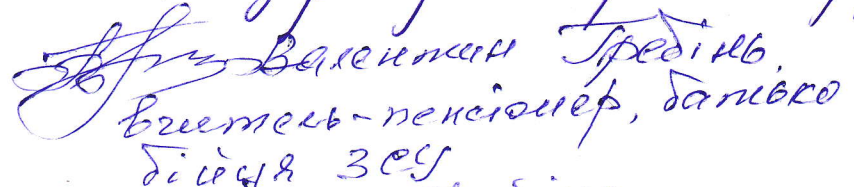 Валентин Гребінь,
вчитель-пенсіонер, батько
бійця ЗСУ